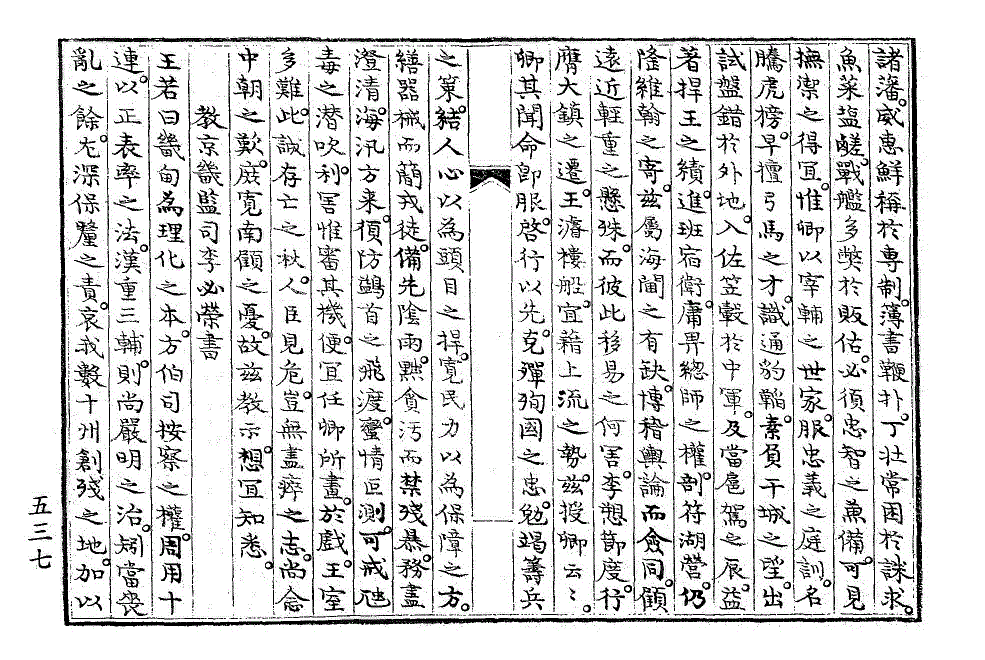 諸藩。威惠鮮稱於專制。薄書鞭扑。丁壯常困於誅求。
魚菜盐鹺。戰艦多弊於販估。必須忠智之兼備。可見
撫禦之得宜。惟卿以宰輔之世家。服忠義之庭訓。名
騰虎榜。早擅弓馬之才。識通豹韜。素負干城之望。出
試盤錯於外地。入佐笠轂於中軍。及當扈駕之辰。益
著捍王之績。進班宿衛。庸畀緫師之權。剖符湖營。仍
隆維翰之寄。玆屬海閫之有缺。博稽輿論而僉同。顧
遠近輕重之懸殊。而彼此移易之何害。李愬節度。行
膺大鎮之遷。王濬樓船。宜藉上流之勢。玆授卿云云。
卿其聞命卽服。啓行以先。克殫殉國之忠。勉竭籌兵
之策。結人心以爲頭目之捍。寬民力以爲保障之方。
繕器械而簡戎徒。備先陰雨。黜貪汚而禁殘暴。務盡
澄清。海汛方來。須防鷁首之飛渡。蠻情叵測。可戒虺
毒之潜吹。利害惟審其機。便宜任卿所畫。於戱。王室
多難。此誠存亡之秋。人臣見危。豈無盡瘁之志。尚念
中朝之歎。庶寬南顧之憂。故玆敎示。想宜知悉。
敎京畿監司李必榮書
王若曰。畿甸爲理化之本。方伯司按察之權。周用十
連。以正表率之法。漢重三輔。則尚嚴明之治。矧當喪
亂之餘。尤深保釐之責。哀我數十州創殘之地。加以
五三七